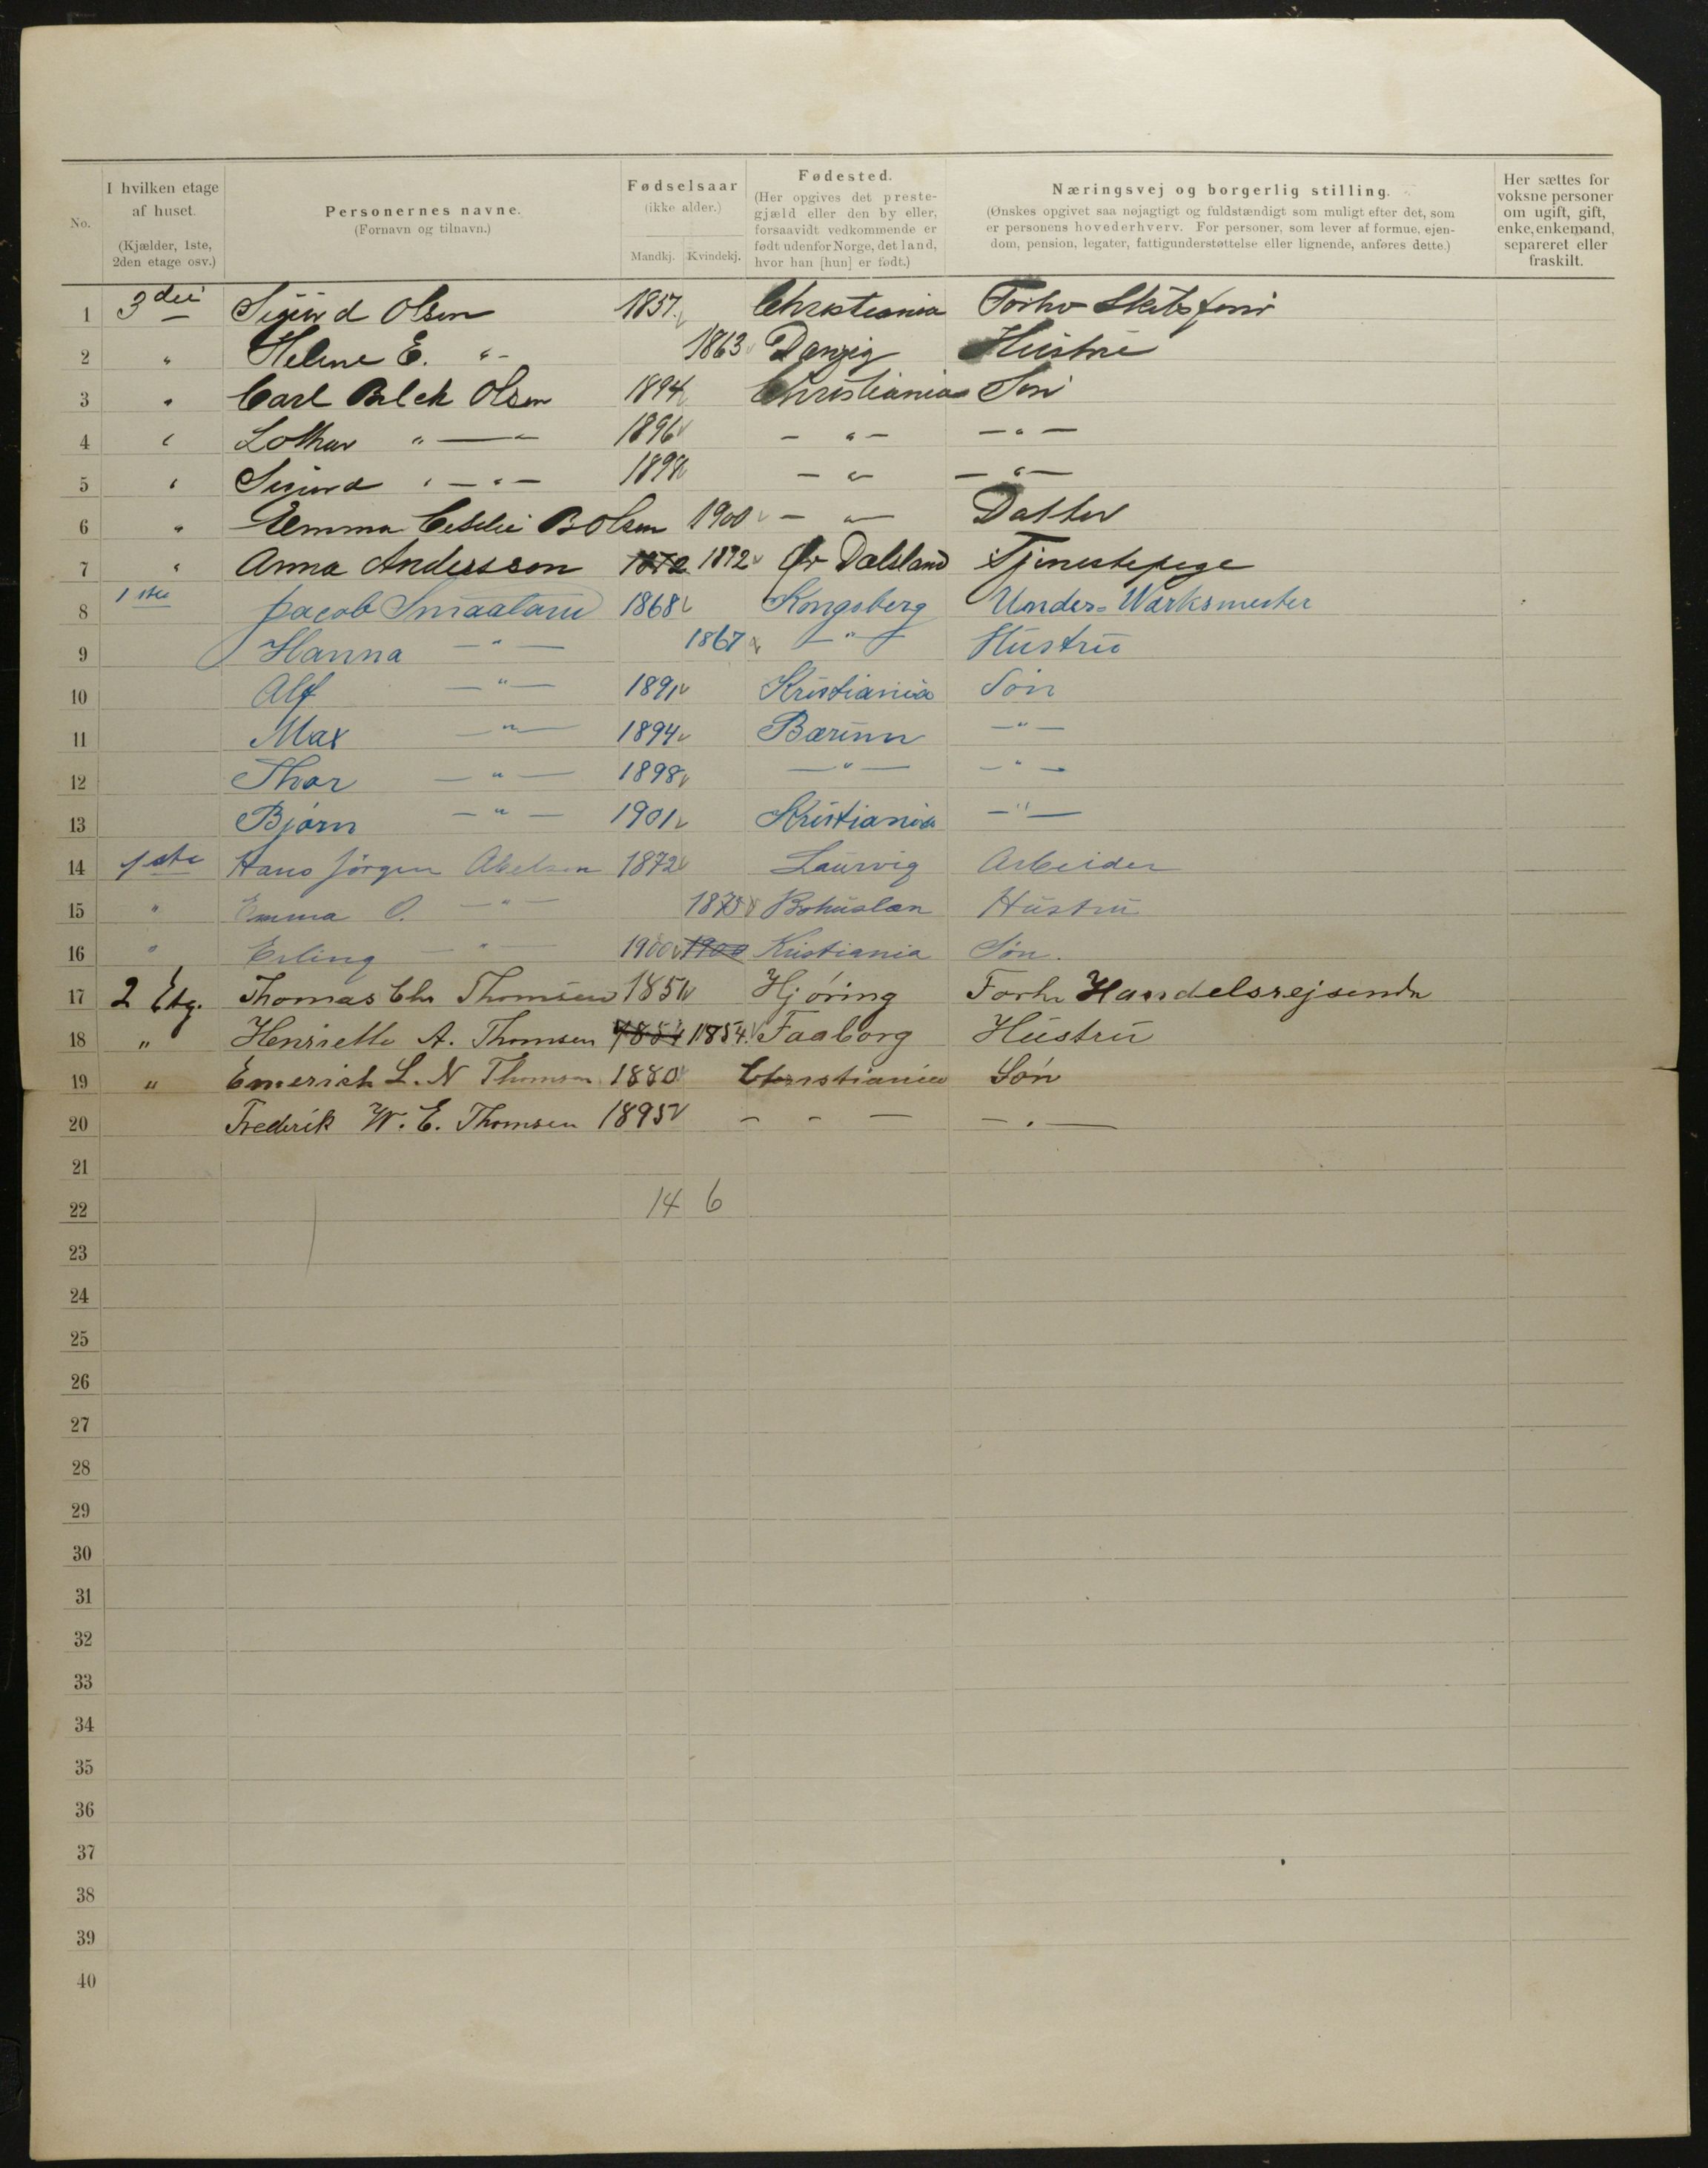 No. | I hvilken etage af huset. (Kjælder, 1ste, 2den etage osv.) | Personernes navne. (Fornavn og tilnavn.) | Fødselsaar (ikke alder.) Mandkj. Kvindekj. | Fødested. (Her opgives det prestegjæld eller den by eller, forsaavidt vedkommende er født udenfor Norge, det land, hvor han [hun] er født.) | Næringsvej og borgerlig stilling. (Ønskes opgivet saa nøjagtigt og fuldstændigt som muligt efter det, som er personens hovederhverv. For personer, som lever af formue, ejendom, pension, legater, fattigunderstøttelse eller lignende, anføres dette.) | Her sættes for voksne personer om ugift, gift, enke, enkemand, separeret eller fraskilt.
1 3die Sigurd Olsen 1857 Christiania Forhv Skibsfører
2 " Helene E. " - 1863 Danzig Hustru
3 " Carl Balck Olsen 1894 Christiania Søn
4 " Lothar " — " 1896 - " - - " -
5 " Sigurd " - " - 1898 - " - " -
6 " Emma Cecilie B Olsen 1900 - " - Datter
7 " Anna Andersson 1872 1872 Dalsland Tjenestepige
8 1ste Jacob Smaaland 1868 Kongsberg Under-Værksmester
9 Hanna - " - 1867 - " - Hustru
10 Alf - " - 1891 Kristiania Søn
11 Max - " - 1894 Bærum - " -
12 Thor - " - 1898 - " - - " -
13 Bjørn - " - 1901 Kristiania - " -
14 1ste Hans Jørgen Abelsen 1872 Laurvig Arbeider
15 " Emma O. - " - 1875 Bohuslæn Hustru
16 " Erling - " - 1900 1900 Kristiania Søn.
17 2 Etg. Thomas Chr Thomsen 1851 Hjøring Forhv Handelsrejsende
18 " Henriette A. Thomsen 1854 1854. Faaborg Hustru
19 " Emerich L. N Thomsen 1880 Christiania Søn
20 Frederik W. E. Thomsen 1895 - - - - . -
21
22 14 6
23
24
25
26
27
28
29
30
31
32
33
34
35
36
37
38
39
40